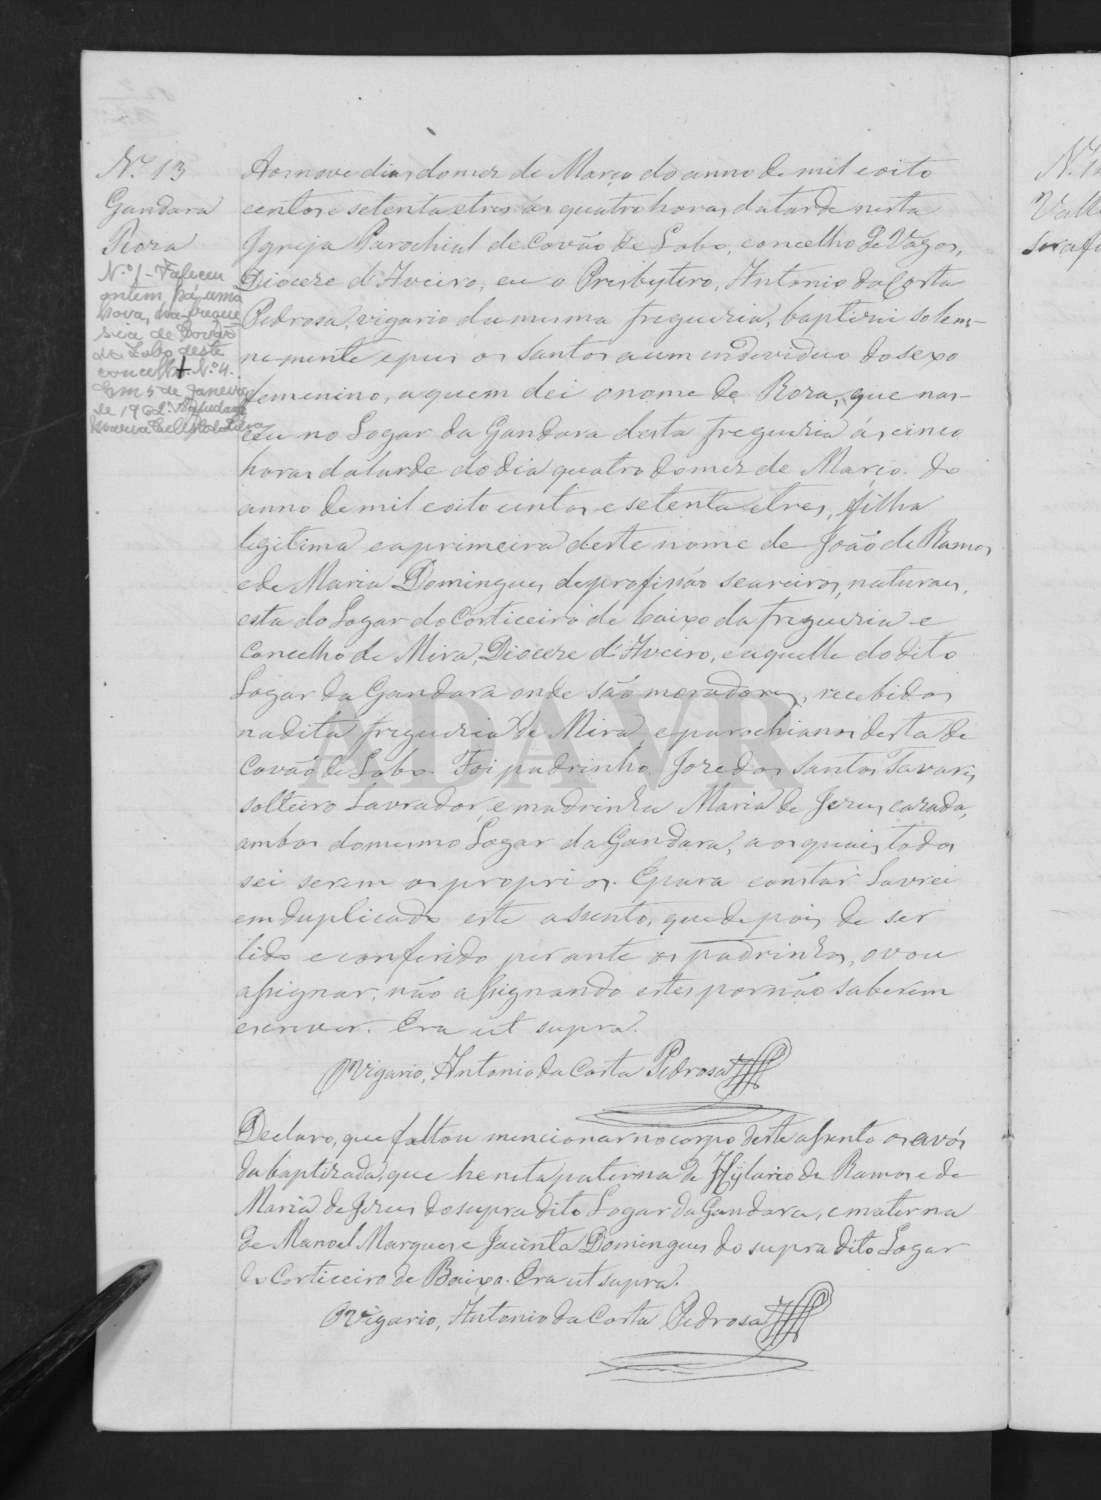 N.º 13
Gandara
Roza
N.º 1 - Faleceu
ontem, há uma
hora, na fregue
sia de Covão
do Lobo deste
concelho. N.º 4.
Em 5 de Janeiro
de 196
Aos nove dias do mez de Março do anno de mil e oito
centos e setenta e tres ás quatro horas da tarde nesta
Igreja Parochial de Covão de Lobo, concelho de Vagos,
Diocese d'Aveiro, eu o Presbytero, Antonio da Costa
Pedrosa, vigario da mesma freguezia, baptizei solem-
nemente e puz os santos a um individuo do sexo
femenino, a quem dei o nome de Roza, que nas-
ceu no Logar da Gandara desta freguezia ás cinco
horas da tarde do dia quatro do mez de Março do
anno de mil e oito centos e setenta e tres, filha
legitima e a primeira deste nome de João de Ramos
e de Maria Domingues, de profissão seareiros, naturaes,
esta do Logar do Corticeiro de baixo da freguezia e
Concelho de Mira, Diocese d'Aveiro, e aquelle do dito
Logar da Gandara onde são moradores, recebidos
na dita freguezia de Mira, e parochianos desta de
Covão de Lobo. Foi padrinho Joze dos Santos Tavares,
solteiro Lavrador, e madrinha Maria de Jezus, cazada,
ambos do mesmo Logar da Gandara, aos quaes todos
sei serem os proprios. E para constar Lavrei
em duplicado este assento, que depois de ser
lido e conferido perante os padrinhos, o vou
assignar, não assignando estes por não saberem
escrever. Era ut supra.
O Vigario, Antonio da Costa Pedrosa
Declaro, que faltou mencionar no corpo deste assento os avós
da baptizada, que he neta paterna de Hylario de Ramos e de
Maria de Jezus do supra dito Logar da Gandara, e materna
de Manoel Marques e Jacinta Domingues do supra dito Logar
do Corticeiro de Baixo. Era ut supra.
O Vigario, Antonio da Costa Pedrosa
ADAVR